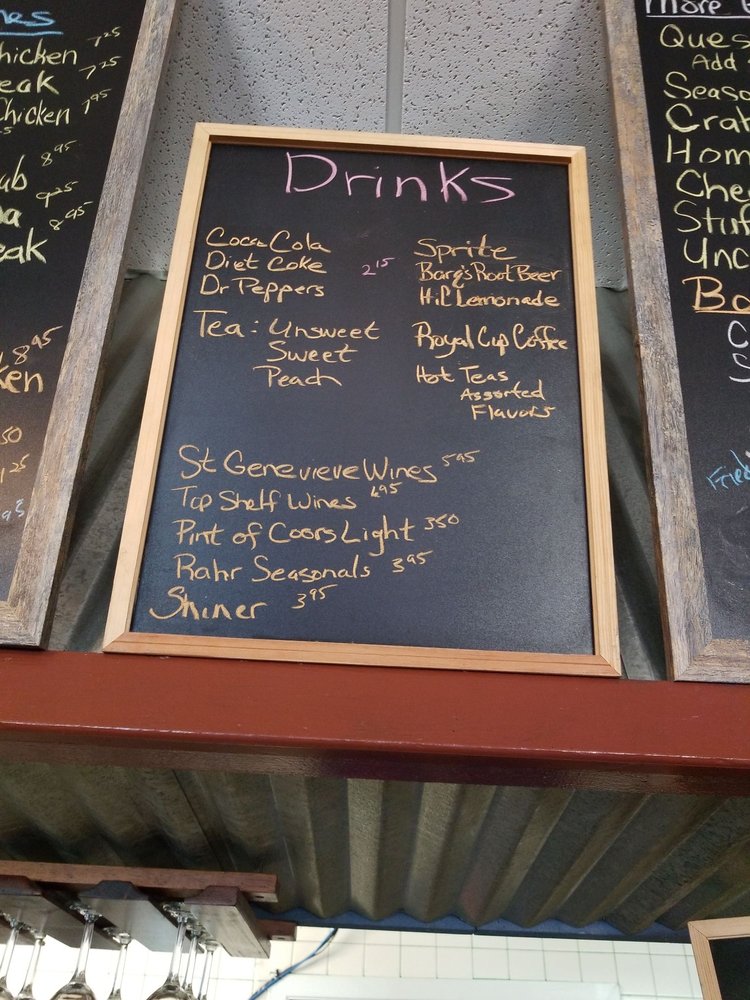 nes
Chicken 7.25
eak 7.25
Chicken 7.95
8.95
ub
9.25
8.95
eak
8.95
ken
50
1.25
Drinks
Coca Cola
Diet Coke 2 15
Dr Peppers
Tea: Unsweet
Sweet
Peach
Sprite
Barq's Root Beer
Hi.C Lemonade
Royal Cup Coffee
Hot Teas
Assorted
Flavors
St Genevieve Wines 5 95
Top Shelf Wines 6 95
Pint of Coors Light 3 50
Rahr Seasonals 3 95
Shiner 3 95
More
Ques
Add
Seaso
Crab
Hom
Che
Stuf
Unc
Ba
C
S
Fried